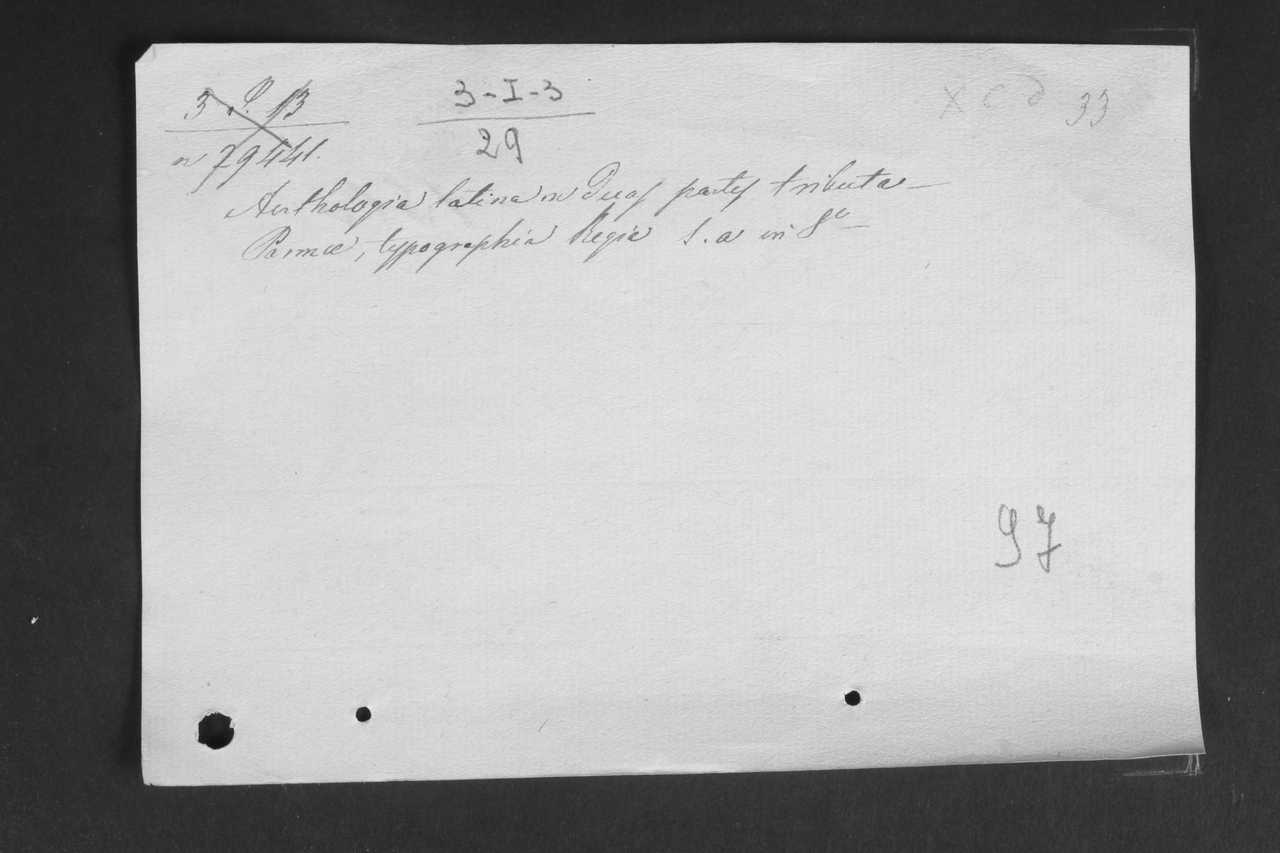 3 P. 13
3-I-3
X C d 33
n 79441.
29
Anthologia latina in Duas partes tributa —
Parmæ, typographia Regia S. a in 8º —
97